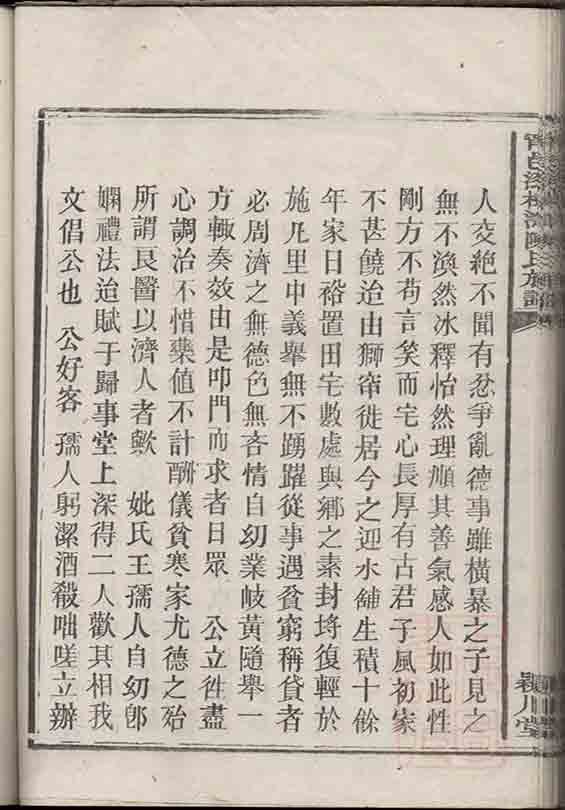 人交絶不聞有忿爭亂德事雖橫暴之子見之
無不渙然冰釋怡然理順其善氣感人如此性
剛方不茍言笑而宅心長厚有古君子風初家
不甚饒迨由獅帘徙居今之迎水舖生積十餘
年家日裕置田宅數處與鄉之素封埒復輕於
施凡里中義舉無不踴躍從事遇貧窮稱貸者
必周濟之無德色無吝情自幼業岐黃隨舉一
方輙奏效由是叩門而求者日眾 公立徃盡
心調治不惜藥值不計酬儀貧寒家尤德之殆
所謂良醫以濟人者歟 妣氏王孺人自幼郎
嫻禮法迨賦于歸事堂上深得二人歡其相我
文倡公也 公好客 孺人躬潔酒殽咄嗟立辦
陳氏族譜
潁川堂